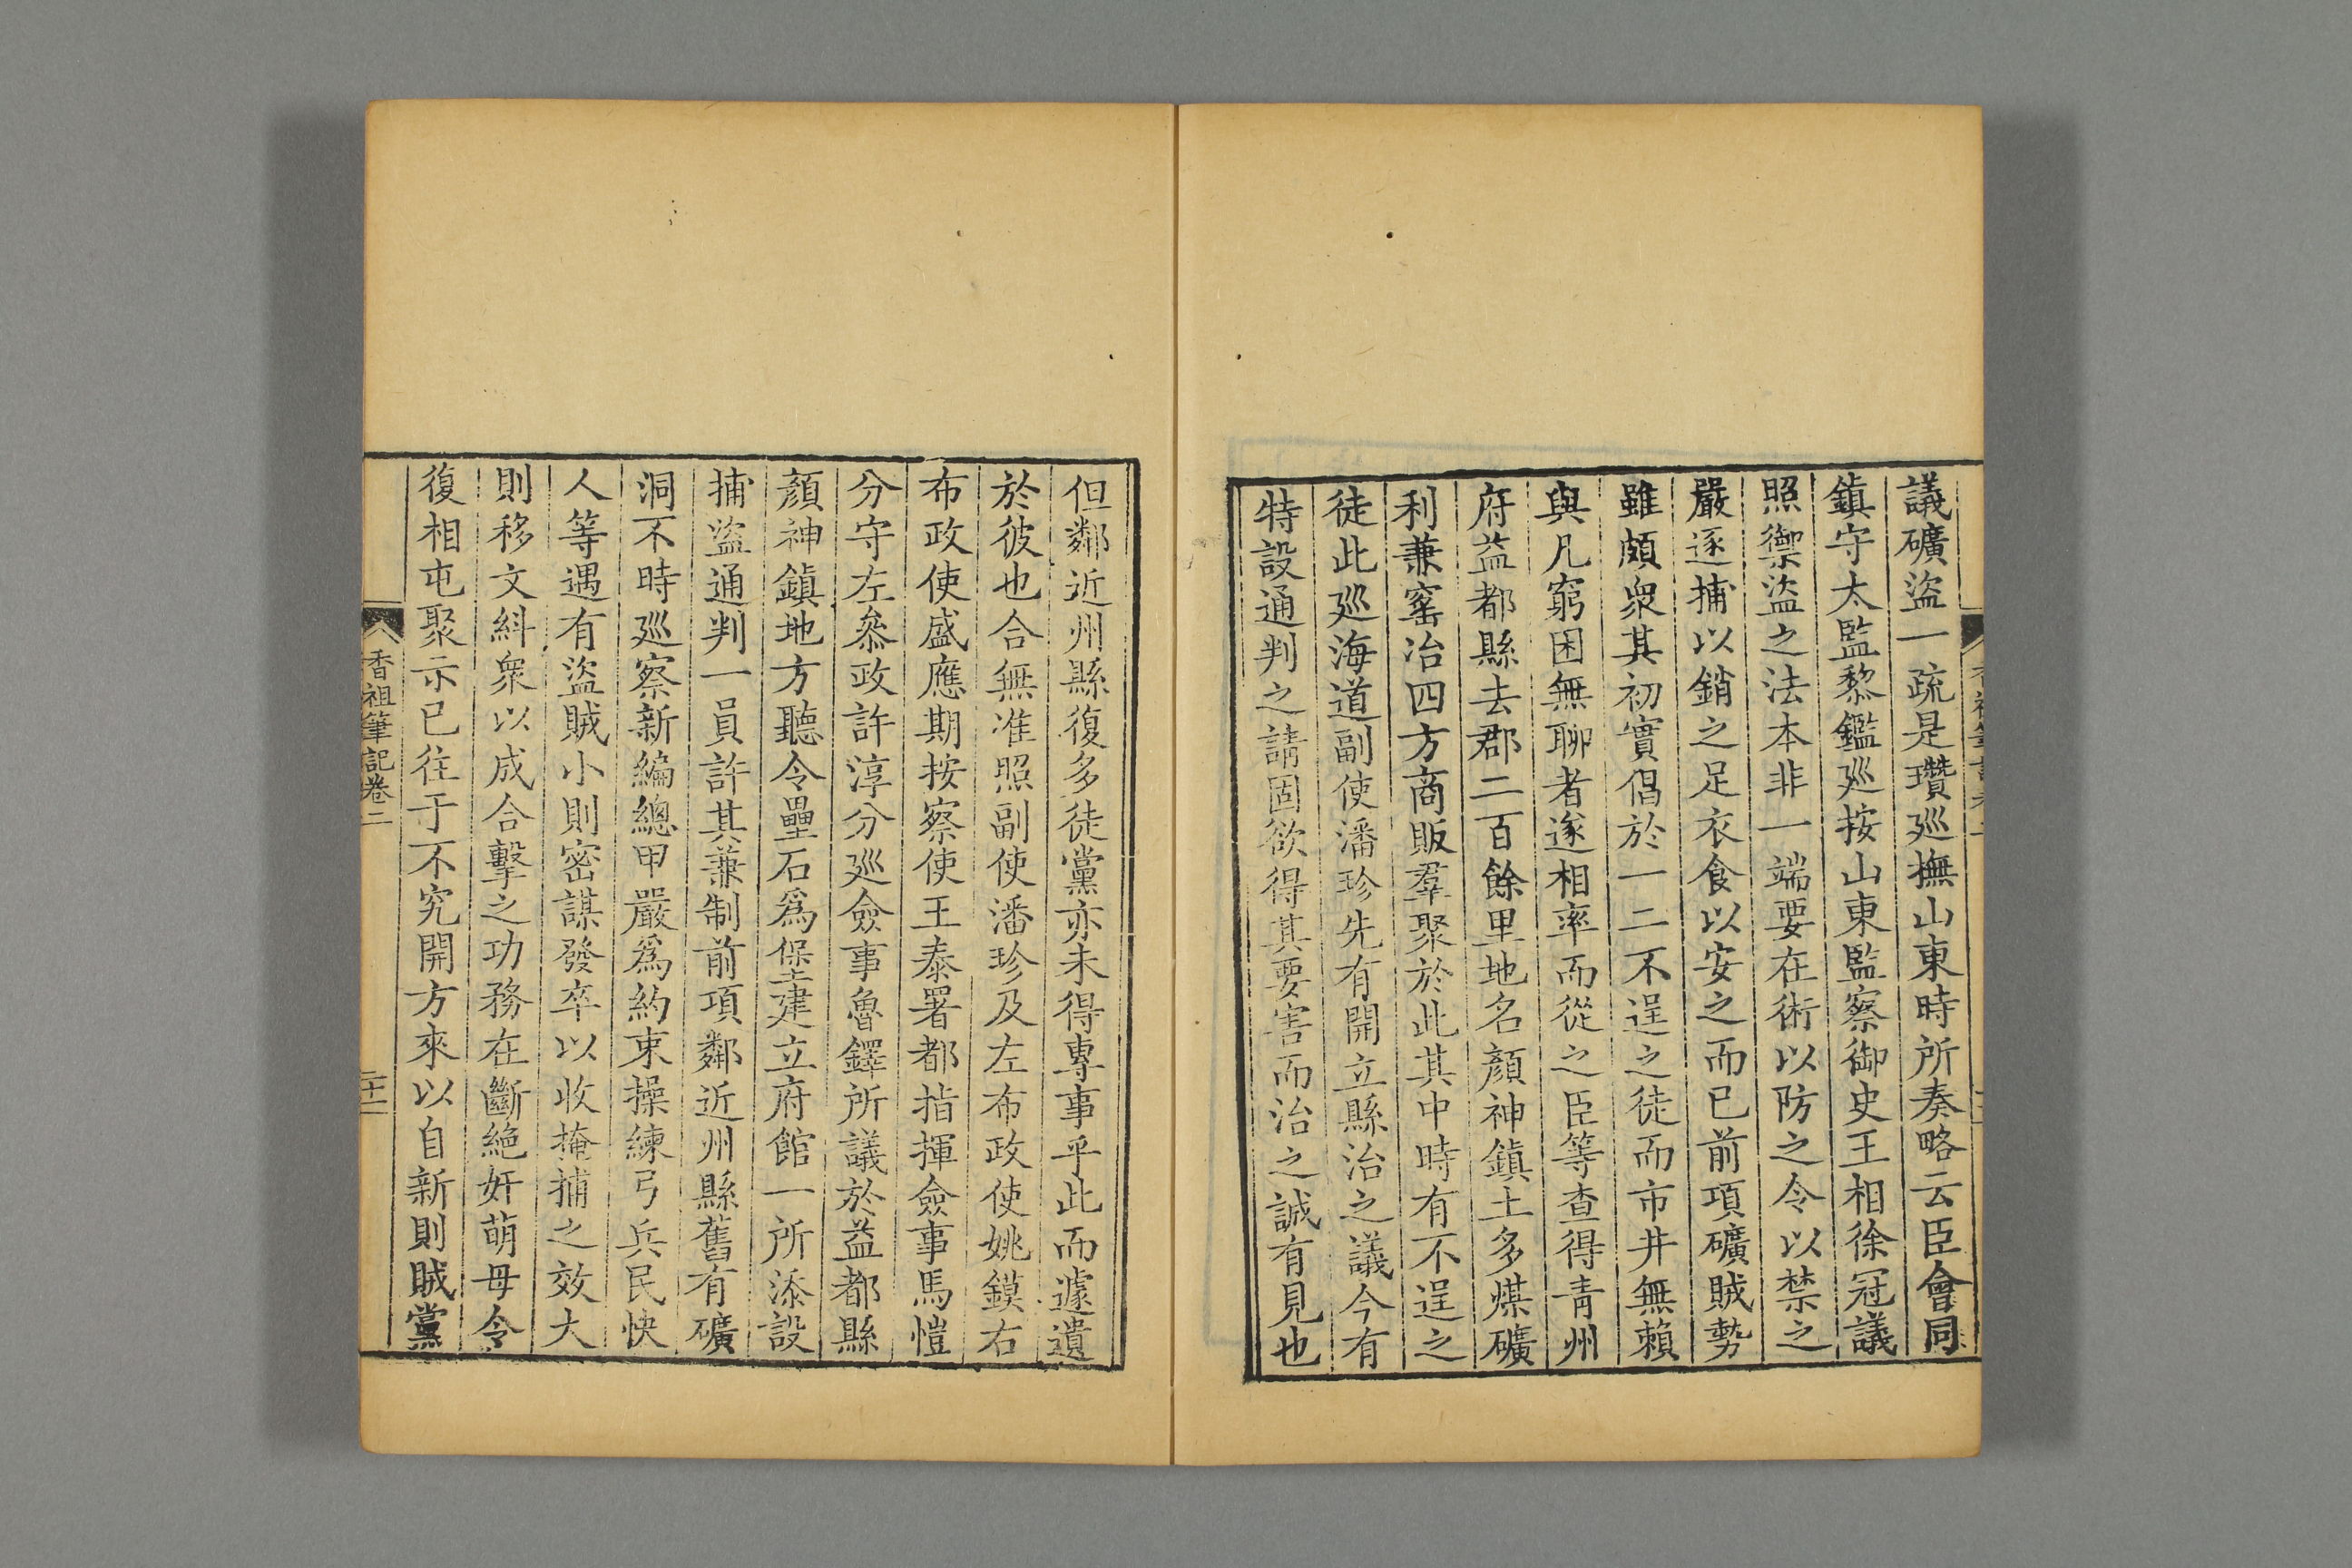 議礦盜一疏是瓚廵撫山東時所奏略云臣會同
鎮守太監黎鑑廵按山東監察御史王相徐冠議
照禦盜之法本非一端要在術以防之令以禁之
嚴逐捕以銷之足衣食以安之而已前項礦賊勢
雖頗衆其初實倡於一二不逞之徒而市井無賴
與凡窮困無聊者遂相率而從之臣等查得青州
府益都縣去郡二百餘里地名顏神鎮土多煤礦
利兼窰冶四方商販羣聚於此其中時有不逞之
徒此廵海道副使潘珍先有開立縣治之議今有
特設通判之請固欲得其要害而治之誠有見也
但鄰近州縣復多徒黨亦未得專事乎此而遽遺
於彼也合無准照副使潘珍及左布政使姚鏌右
布政使盛應期按察使王泰署都指揮僉事馬愷
分守左叅政許淳分廵僉事魯鐸所議於益都縣
顏神鎮地方聽令壘石爲堡建立府館一所添設
捕盜通判一員許其兼制前項鄰近州縣舊有礦
洞不時廵察新編總甲嚴爲約束操練弓兵民快
人等遇有盜賊小則密謀發卒以收掩捕之效大
則移文糾衆以成合擊之功務在斷絕奸萌毋令
復相屯聚示已往于不究開方來以自新則賊黨
香祖筆記卷二
二十一